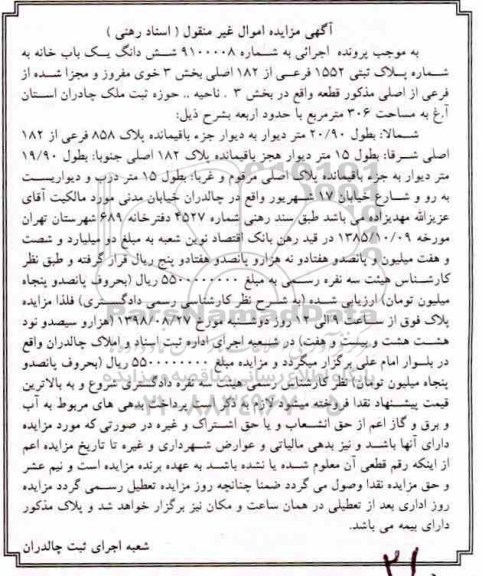 آگهی مزایده اموال غیر منقول ( اسناد رهنی )
به موجب پرونده اجرائی به شماره ۹۱۰۰۰۰۸ شش دانگ یک باب خانه به
شماره پلاک ثبتی ۱۵۵۲ فرعی از ۱۸۲ اصلی بخش ۳ خوی مفروز و مجزا شده از
فرعی از اصلی مذکور قطعه واقع در بخش ۳ . ناحیه .. حوزه ثبت ملک چادران استان
آ.غ به مساحت ۳۰۶ مترمربع با حدود اربعه بشرح ذیل:
شمالا: بطول ۲۰/۹۰ متر دیوار به دیوار جزء باقیمانده پلاک ۸۵۸ فرعی از ۱۸۲
اصلی شرقا: بطول ۱۵ متر دیوار هجز باقیمانده پلاک ۱۸۲ اصلی جنوبا: بطول ۱۹/۹۰
متر دیوار به جزء باقیمانده پلاک اصلی مرقوم و غربا: بطول ۱۵ متر درب و دیواریست
به رو و شارع خیابان ۱۷ شهریور واقع در چالدران خیابان مدنی مورد مالکیت آقای
عزیزالله مهدیزاده می باشد طبق سند رهنی شماره ۴۵۲۷ دفترخانه ۶۸۹ شهرستان تهران
مورخه ۱۳۸۵/۱۰/۰۹ در قید رهن بانک اقتصاد نوین شعبه به مبلغ دو میلیارد و شصت
و هفت میلیون و پانصدو هفتادو نه هزارو پانصدو هفتادو پنج ریال قرار گرفته و طبق نظر
کارشناس هیئت سه نفره رسمی به مبلغ ۵۵۰۰۰۰۰۰۰۰ ریال (بحروف پانصدو پنجاه
میلیون تومان) ارزیابی شده (به شرح نظر کارشناسی رسمی دادگستری) فلذا مزایده
پلاک فوق از ساعت ۹ الی ۱۲ روز دوشنبه مورخ ۱۳۹۸/۰۸/۲۷ (هزارو سیصدو نود
هشت هشت و بیست و هفت) در شعبه اجرای اداره ثبت اسناد و املاک چالدران واقع
در بلوار امام علی برگزار میگردد و مزایده مبلغ ۵۵۰۰۰۰۰۰۰۰ ریال (بحروف پانصدو
پنجاه میلیون تومان) نظر کارشناس رسمی هیئت سه نفره دادگستری شروع و به بالاترین
قیمت پیشنهاد نقدا فروخته میشود لازم به ذکر است پرداخت بدهی های مربوط به آب
و برق و گاز اعم از حق انشعاب و یا حق اشتراک و غیره در صورتی که مورد مزایده
دارای آنها باشد و نیز بدهی مالیاتی و عوارض شهرداری و غیره تا تاریخ مزایده اعم
از اینکه رقم قطعی آن معلوم شده یا نشده باشد به عهده برنده مزایده است و نیم عشر
و حق مزایده نقدا وصول می گردد ضمنا چنانچه روز مزایده تعطیل رسمی گردد مزایده
روز اداری بعد از تعطیلی در همان ساعت و مکان نیز برگزار خواهد شد و پلاک مذکور
دارای بیمه می باشد.
شعبه اجرای ثبت چالدران